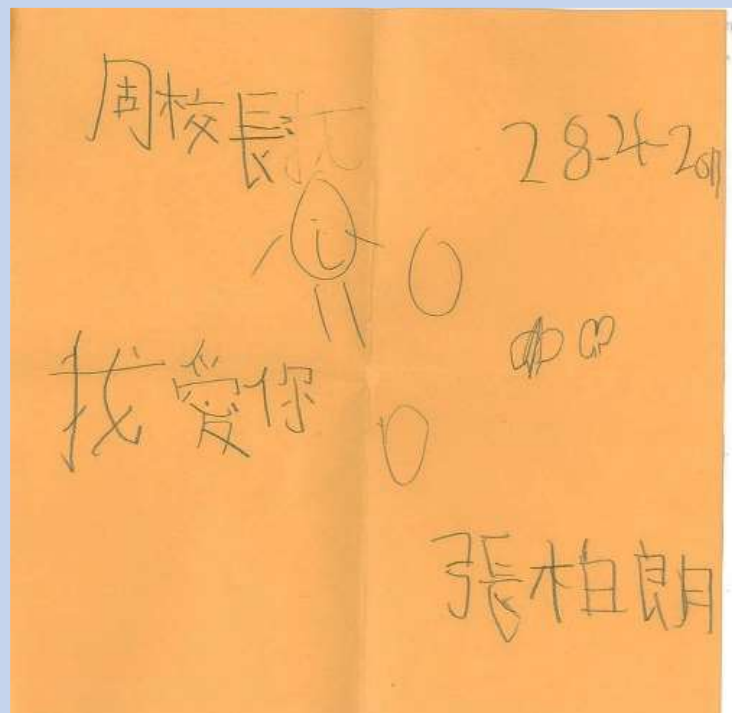 周校長
28-4-2011
我愛你
張柏朗